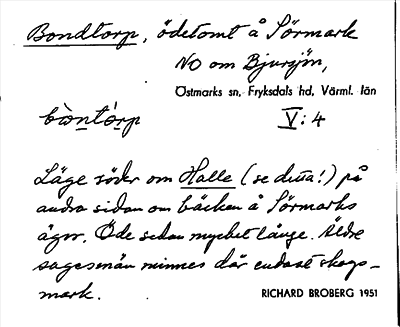 Bondtorp, ödetomt å Sörmark
NO om Bjursjön,
Östmarks sn, Fryksdals hd, Värml. län
bòntórp V:4
Läge söder om Halle (se detta!) på
andra sidan om bäcken å Sörmarks
ägor. Öde sedan mycket länge. Äldre
sagesmän minnes där endast skogs-
mark.
RICHARD BROBERG 1951